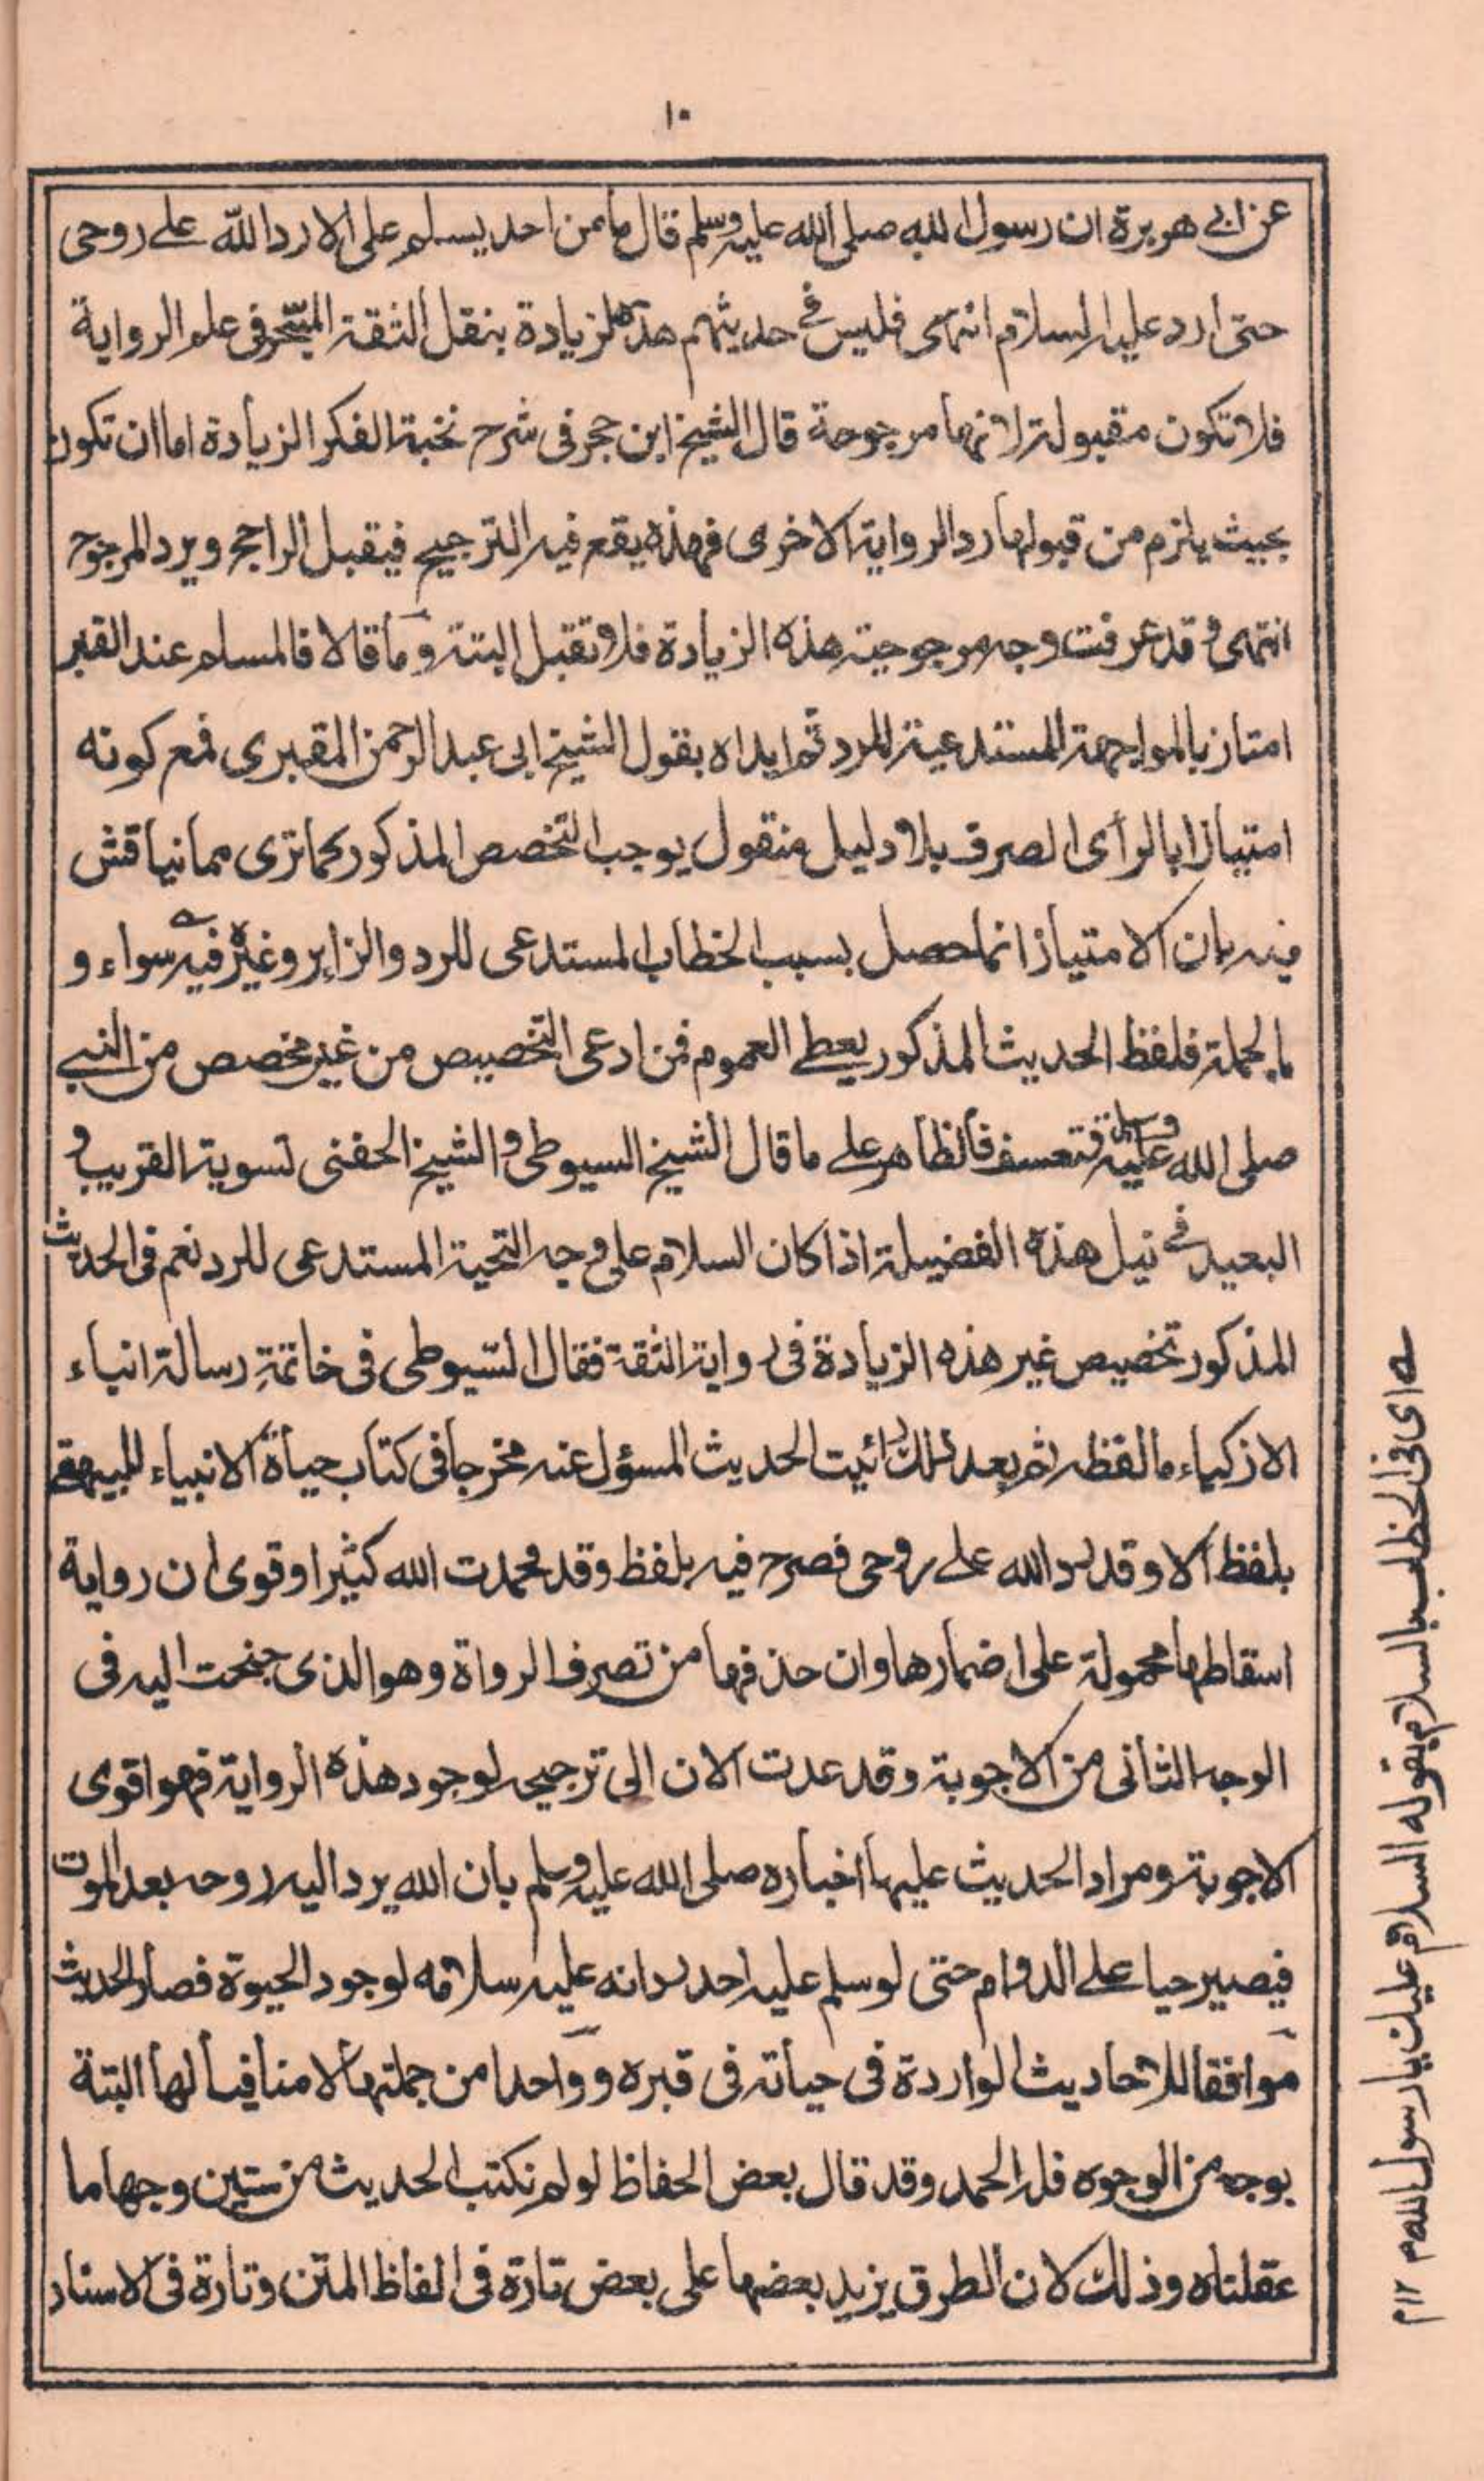 ١٠
عن ابى هريرة ان رسول الله صلى الله عليه وسلم قال ما من احد يسلم على الا رد الله على روحى
حتى ارد عليه السلام انتهى فليس فى حديثهم هذه الزيادة بنقل الثقة المتبحر فى علم الرواية
فلا تكون مقبولة لانها مرجوحة قال الشيخ ابن حجر فى شرح نخبة الفكر الزيادة اما ان تكون
بحيث يلزم من قبولها رد الرواية الاخرى فهذه يقع فيه الترجيح فيقبل الراجح ويرد المرجوح
انتهى وقد عرفت وجه مرجوحية هذه الزيادة فلا تقبل البتة وما قالا فالمسلم عند القبر
امتاز بالمواجهة المستدعية للرد ثم ايداه بقول الشيخ ابى عبد الرحمن المقبرى فمع كونه
امتيازا بالرأى الصرف بلا دليل منقول يوجب التخصص المذكور كما ترى مما نياقش
فيه بان الامتياز انما حصل بسبب الخطاب المستدعى للرد والزاير وغيره فيه سواء و
بالجملة فلفظ الحديث المذكور يعطى العموم فمن ادعى التخصيص من غير مخصص من النبى
صلى الله عليه وسلم فتعسف فالظاهر على ما قال الشيخ السيوطى والشيخ الحفنى تسوية القريب و
البعيد فى نيل هذه الفضيلة اذا كان السلام على وجه التحية المستدعى للرد نعم فى الحديث
المذكور تخصيص غير هذه الزيادة فى رواية الثقة فقال السيوطى فى خاتمة رسالة انباء
الاذكياء ما لفظه ثم بعد ذلك رائيت الحديث المسؤل عنه مخرجا فى كتاب حياة الانبياء للبيهقى
بلفظ الا وقد رد الله على روحى فصرح فيه بلفظ وقد فحمدت الله كثيرا وقوى ان رواية
اسقاطها محمولة على اضمارها وان حذفها من تصرف الرواة وهو الذى جنحت اليه فى
الوجه الثانى من الاجوبة وقد عدت الان الى ترجيحه لوجود هذه الرواية فهو اقوى
الاجوبة ومراد الحديث عليها اخباره صلى الله عليه وسلم بان الله يرد اليه روحه بعد الموت
فيصير حيا على الدوام حتى لو سلم عليه احد رد انه عليه سلامه لوجود الحيوة فصار الحديث
موافقا للاحاديث الواردة فى حياته فى قبره و واحدا من جملتها لا منافيا لها البتة
بوجه من الوجوه فلله الحمد وقد قال بعض الحفاظ لو لم نكتب الحديث من ستين وجها ما
عقلناه وذلك لان الطرق يزيد بعضها على بعض تارة فى الفاظ المتن وتارة فى الاسناد
ــه اى فى الخطاب بالسلام بقوله السلام عليك يا رسول الله م ١٢